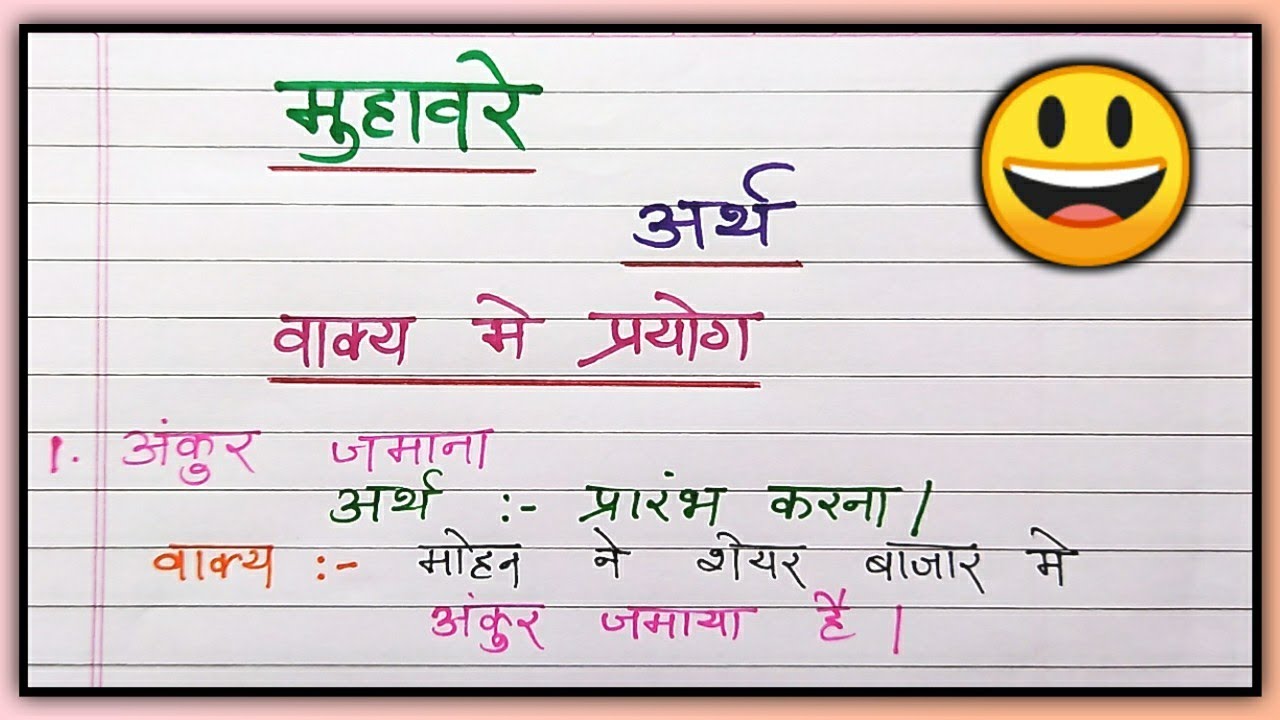 मुहावरे
अर्थ
वाक्य मे प्रयोग
1. अंकुर जमाना
अर्थ :- प्रारंभ करना।
वाक्य :- मोहन ने शेयर बाजार मे
अंकुर जमाया है।